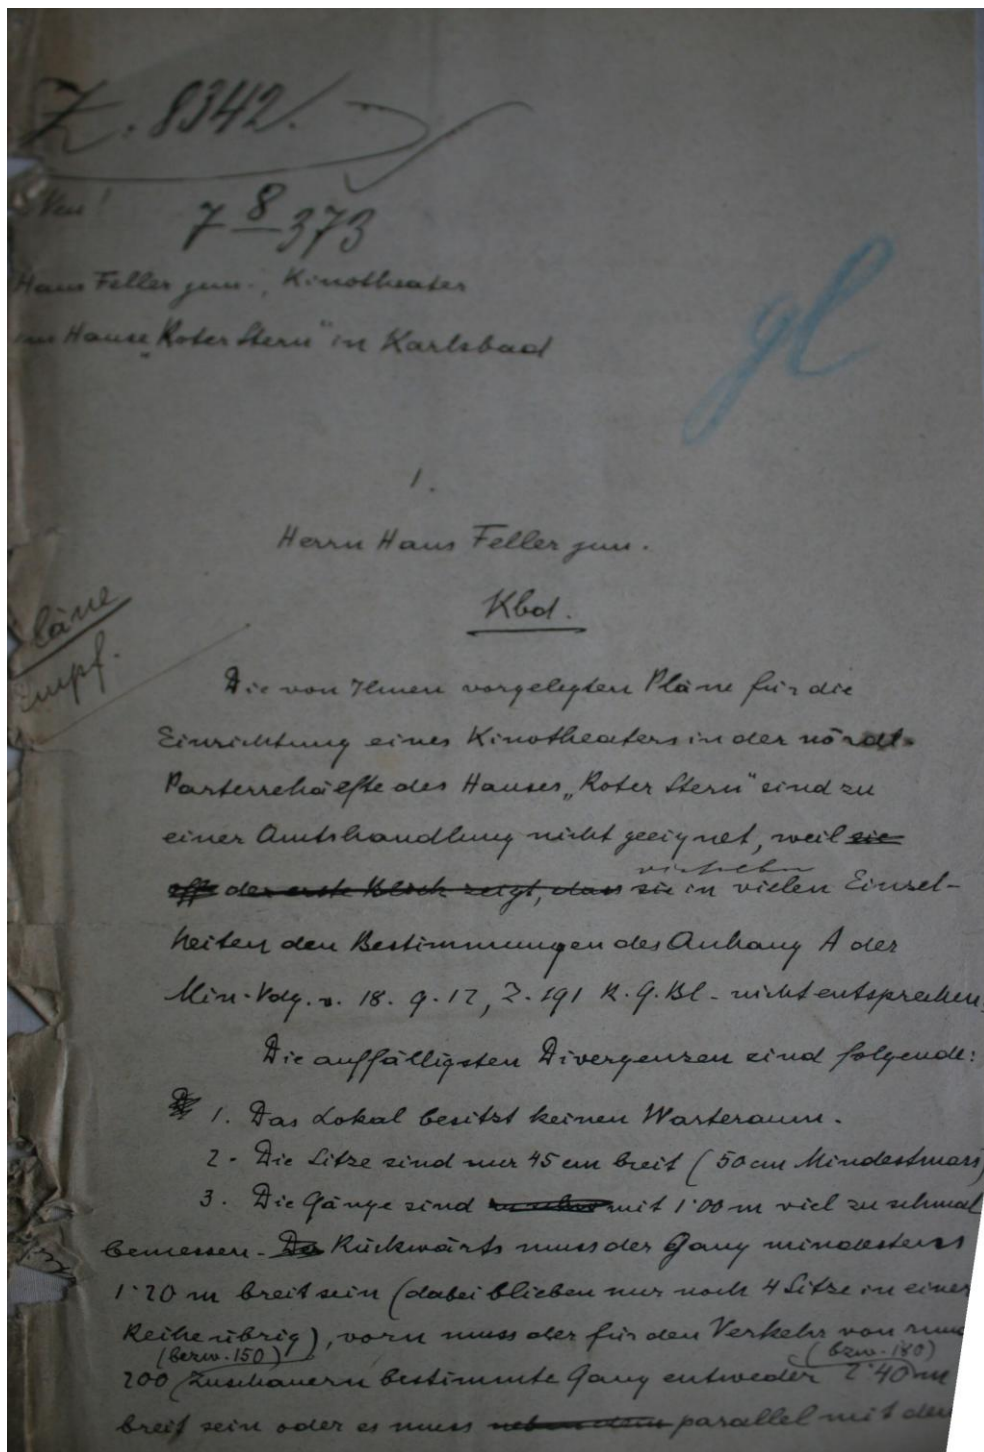 Z. 8342.
7 8 373
Haus Feller jun., Kinotheater
im Hause "Roter Stern" in Karlsbad
gl
1.
Herrn Hans Feller jun.
Kbd.
Pläne
Die von Ihnen vorgelegten Pläne für die
Einrichtung eines Kinotheaters in der nördl.
Parterrehälfte des Hauses „Roter Stern" sind zu
einer Amtshandlung nicht geeignet, weil sie
der erste Block zeigt, dass sie in vielen Einzel-
heiten den Bestimmungen des Anhang A der
Min. Vdg. v. 18. 9. 12, Z. 191 R. G. Bl. nicht entsprechen.
Die auffälligsten Divergenzen sind folgende:
1. Das Lokal besitzt keinen Warteraum.
2. Die Sitze sind nur 45 cm breit (50 cm Mindestmass)
3. Die Gänge sind mit 1·00 m viel zu schmal
bemessen. Da Rückwärts muss der Gang mindestens
1·20 m breit sein (dabei blieben nur noch 4 Sitze in einer
Reihe übrig), vorn muss der für den Verkehr von rund
(bezw. 150) (bzw. 180)
200 Zuschauern bestimmte Gang entweder 2·40 m
breit sein oder es muss neben dem parallel mit dem